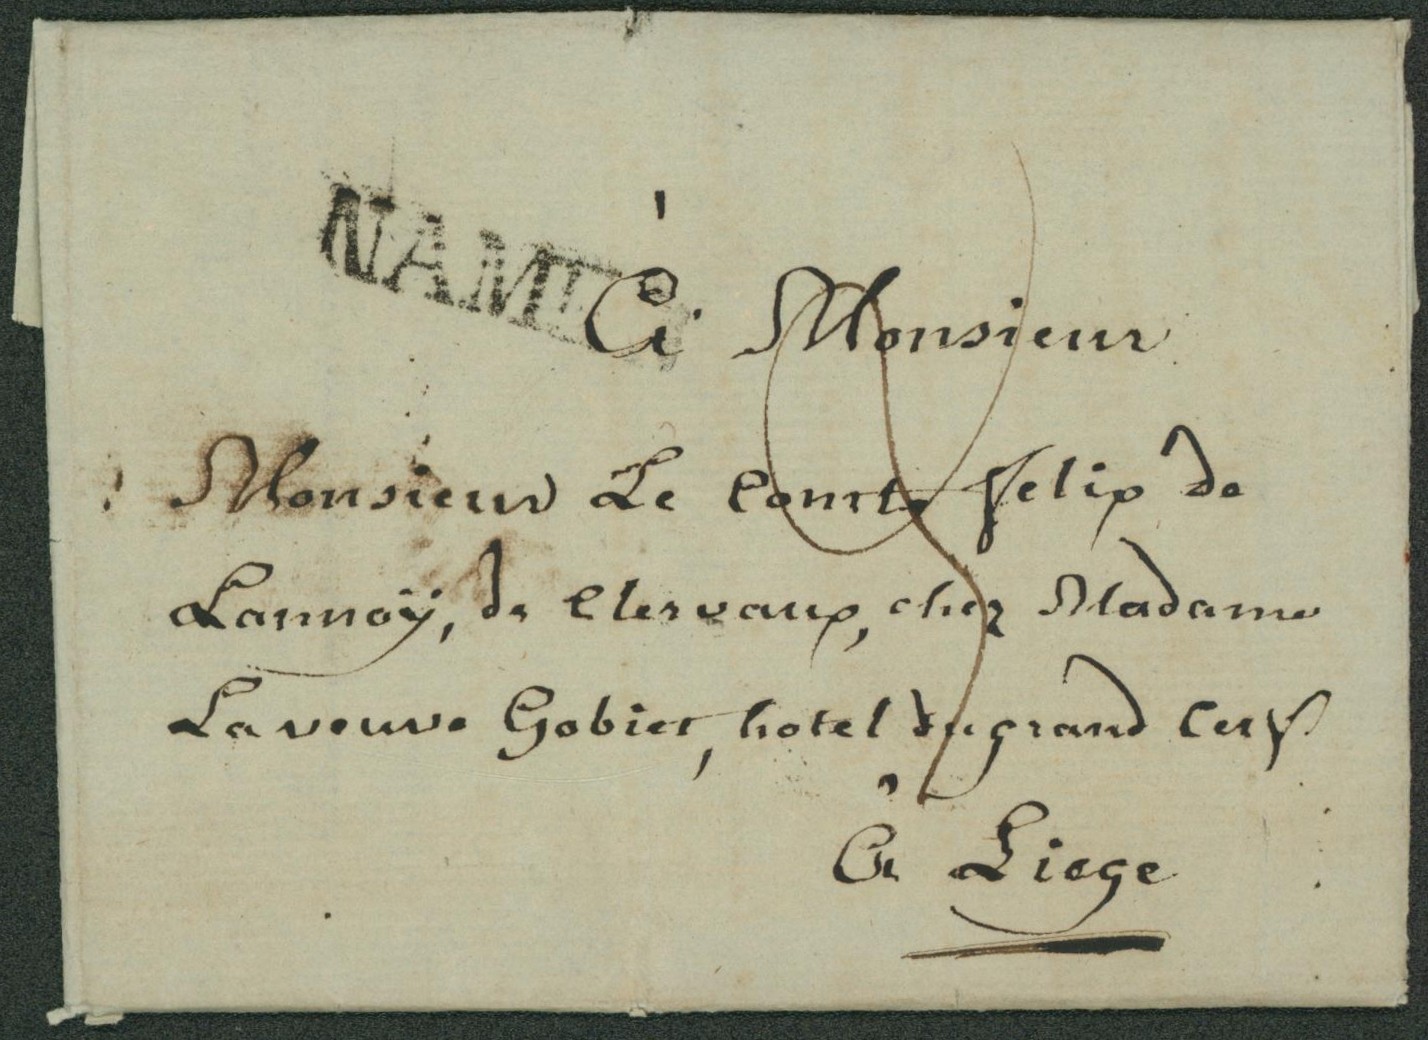 NAMUR
À Monsieur
Monsieur Le Comte Felix de
Lannoÿ, de Clervaux, chez Madame
La veuve Gobiet, hotel du grand Cerf
À Liege